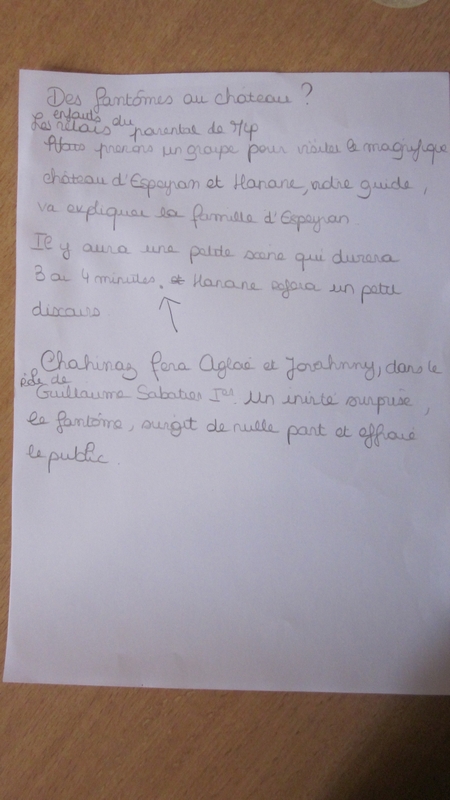 Des fantômes au château ?
enfants du
Les relais parental de
prenons un groupe pour visiter le magnifique
château d'Espeyran et Hanane, notre guide,
va expliquer la famille d'Espeyran
Il y aura une petite scène qui durera
3 ou 4 minutes. et Hanane fera un petit
discours
Chahinaz fera Aglaé et Jovahnny, dans le
rôle de
Guillaume Sabatier Ier. Un invité surprise,
le fantôme, surgit de nulle part et effraie
le public.